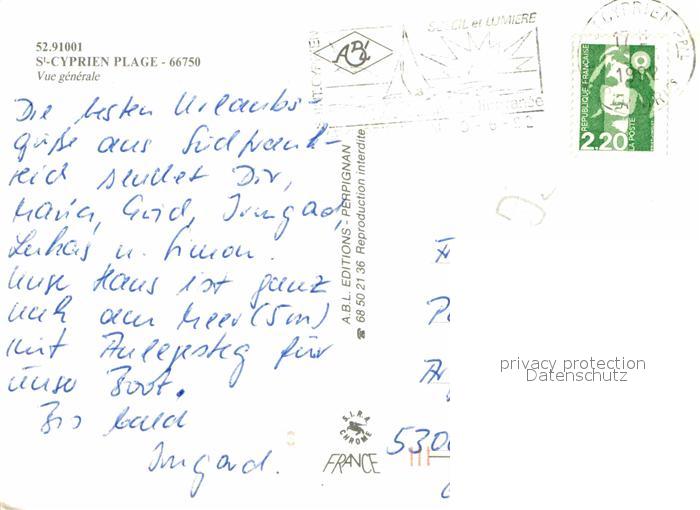 52.91001
St-CYPRIEN PLAGE - 66750
Vue générale
Die besten Urlaubs-
grüße aus Südfrank-
reich sendet Dir,
Maria, Gerd, Irmgard,
Lukas u. Simon.
Unser Haus ist ganz
nah am Meer (5m)
mit Anlegesteg für
unser Boot.
Bis bald
Irmgard.
A.B.L. EDITIONS - PERPIGNAN
☎ 68 50 21 36 Reproduction interdite
S.I.R.A.
CHROME
FRANCE
SOLEIL et LUMIERE
ST-CYPRIEN
REPUBLIQUE FRANÇAISE
2,20
LA POSTE
530
privacy protection
Datenschutz